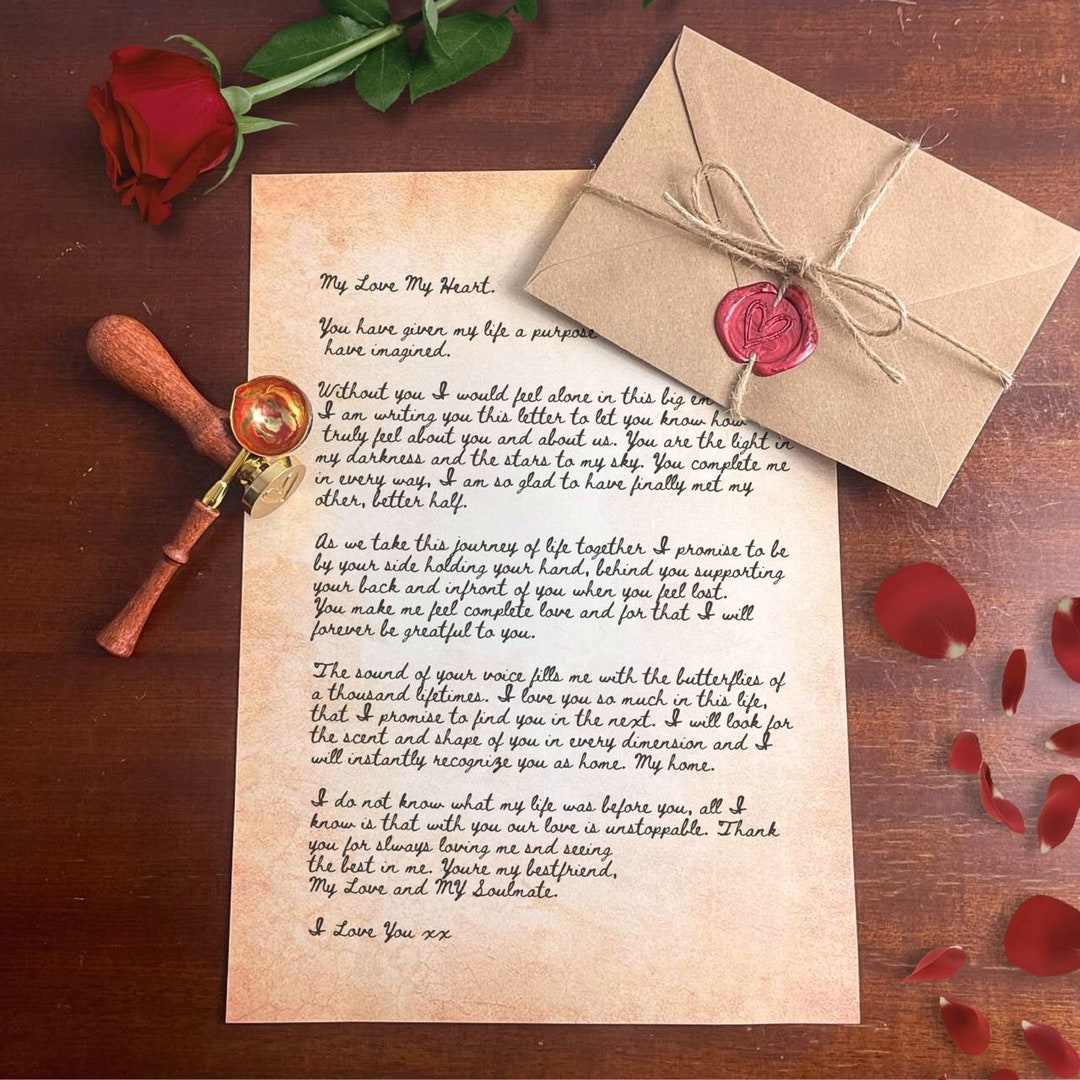 My Love My Heart.
You have given my life a purpose
have imagined.
Without you I would feel alone in this big em
I am writing you this letter to let you know how
truly feel about you and about us. You are the light in
my darkness and the stars to my sky. You complete me
in every way, I am so glad to have finally met my
other, better half.
As we take this journey of life together I promise to be
by your side holding your hand, behind you supporting
your back and infront of you when you feel lost.
You make me feel complete love and for that I will
forever be greatful to you.
The sound of your voice fills me with the butterflies of
a thousand lifetimes. I love you so much in this life,
that I promise to find you in the next. I will look for
the scent and shape of you in every dimension and I
will instantly recognize you as home. My home.
I do not know what my life was before you, all I
know is that with you our love is unstoppable. Thank
you for slways loving me snd seeing
the best in me. Youre my bestfriend,
My Love and MY Soulmate.
I Love You xx